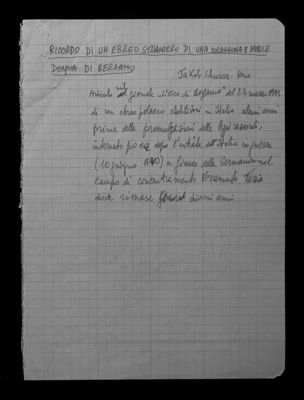 RICORDO DI UN EBREO STRANIERO DI UNA CORAGGIOSA E NOBILE
DONNA DI BERGAMO
Articolo sul giornale "L'Eco di Bergamo" del 23 marzo
di un ebreo polacco stabilitosi in Italia alcuni anni
prima della promulgazione delle leggi razziali,
internato poco dopo l'entrata dell'Italia in guerra
(10 giugno 1940) a fianco della Germania nel
campo di concentramento Ferramonti
dove rimase diversi anni